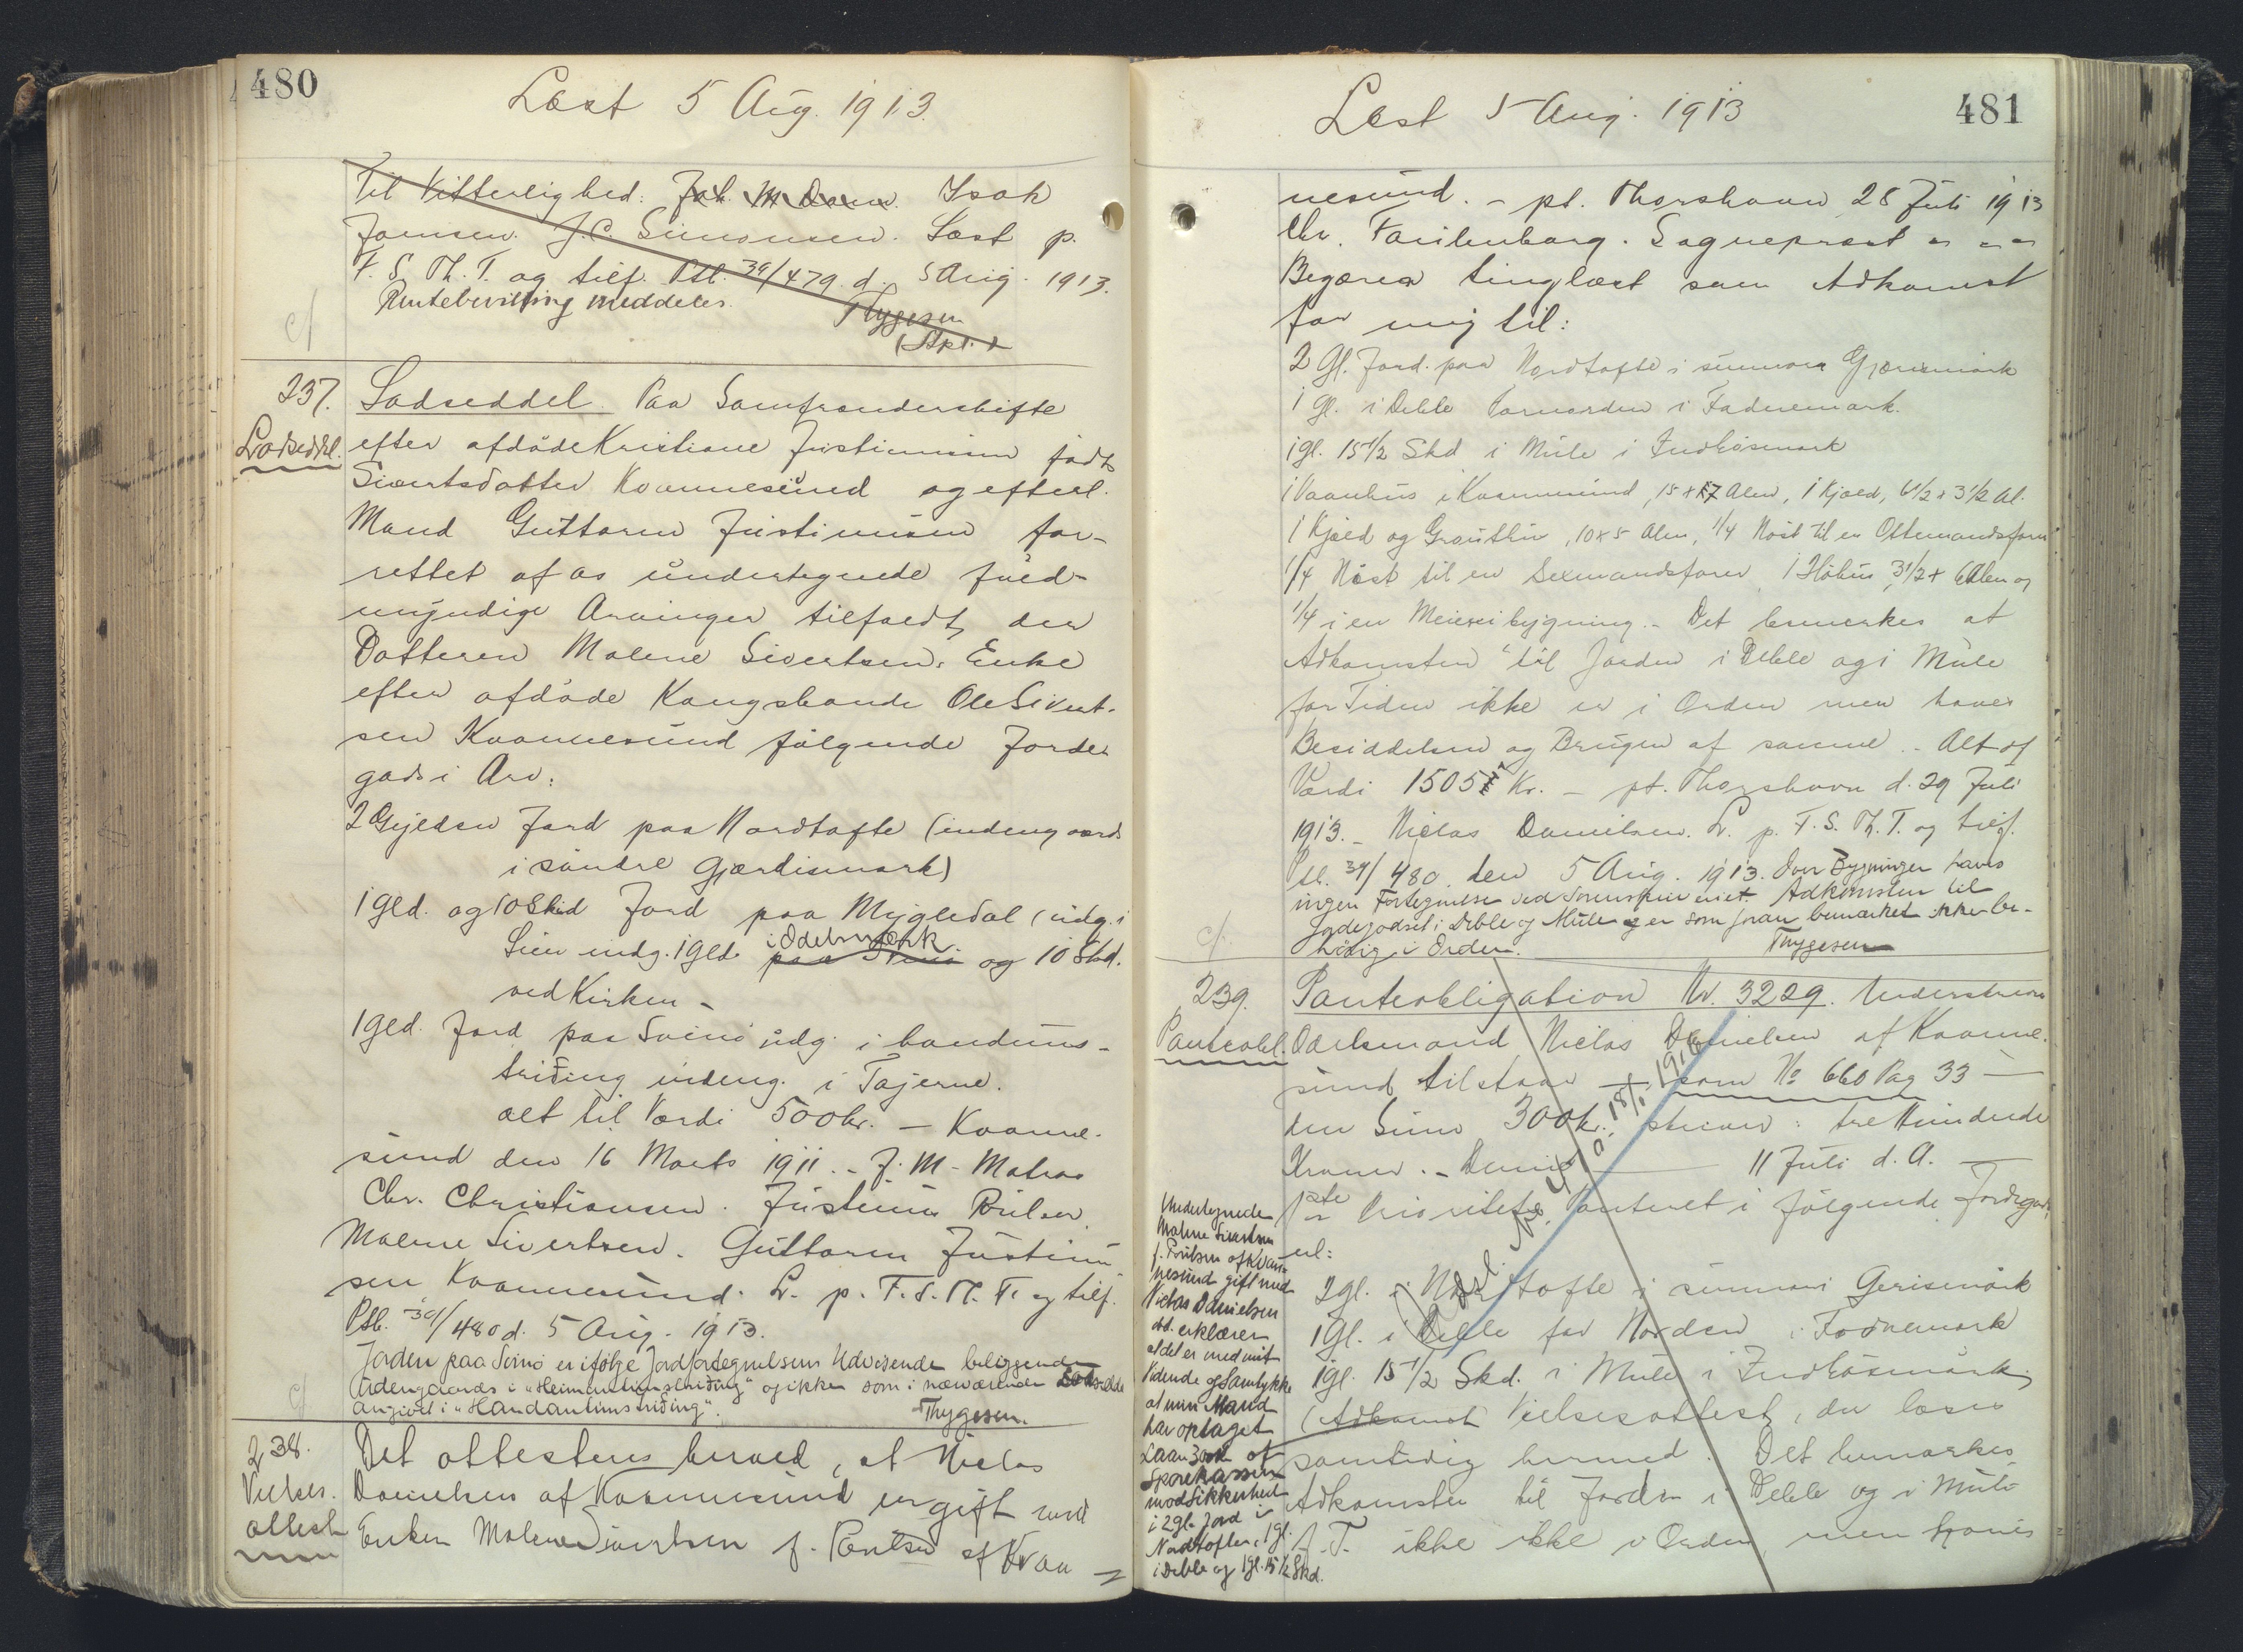 480
Læst 5 Aug. 1913.
Til Vitterlighed: Joh. M Dam. Isak
Joensen. J.C. Simonsen. Læst p.
F. S. Th. T. og tilf. Ptl. 39/479. d. 5 Aug. 1913.
Rentebevilling meddeles.
Thygesen
(Stpl.)
cf
237.
Lodseddel.
Lodseddel. Paa Samfrændeskifte
efter afdöde Kristiane Justinussen födt
Sivertsdatter Kvannesund og efterl.
Mand Guttorm Justinussen for-
rettet af os undertegnede fuld-
myndige Arvinger tilfaldt der
Datteren Malene Sivertsen, Enke
efter afdöde Kongsbonde Ole Sivert-
sen Kvannesund fölgende Jorde-
gods i Arv:
2 Gylden Jord paa Nordtofte (indeng aards
i söndre Gjærdismark)
1 gld. og 10 Skd Jord paa Mygledal (udg. i
Lien indg. 1 gld. paa i Ödelsmark og 10 Skd.
ved Kirken -
1 gld. Jord paa Svinö udg. i handums-
triding indeng. i Tøjerne.
alt til Værdi 500 kr. - Kvanne-
sund den 16 Marts 1911. - J. M. Matras
Chr. Christiansen. Justinus Poulsen.
Malene Sivertsen. Guttorm Justinus-
sen Kvannesund. L. p. F. S. Th. T. og tilf.
Ptl. 39/480 d. 5 Aug. 1913.
Jorden paa Svinö er ifölge Jordfortegnelsens Udvisende beliggende
udengaards i "Heimantunstriding" og ikke som i nærværende Lodseddel
angivet i "Handantunstriding".
Thygesen.
cf
238.
Vielses-
attest
Det attesteres herved, at Niclas
Danielsen af Kvannesund er gift med
Enken Malene Sivertsen f. Poulsen af Kvan =
481
Læst 5 Aug. 1913
nesund. - pt. Thorshavn 28 Juli 1913
Chr. Falkenborg. Sognepræst
Begæres tinglæst som Adkomst
for mig til:
2 Gl. Jord. paa Nordtofte i sunnara Gjærismark
1 gl. i Deble i Fadnemark.
1 gl. 15 1/2 Skd i Mule i Indhösmark
1 Vaanhus i Kvannesund, 15 x 17 Alen, 1 Kjæld, 6 1/2 x 3 1/2 Al.
1 Kjæld og , 10 x 5 Alen, 1/4 Nöst til en Ottemandsfarer
1/4 Nöst til en Sexmandsfarer 1 Höhus, 3 1/2 x 6 Alen og
1/4 i en Meieribygning. - Det bemerkes at
Adkomsten til Jorden i Deble og i Mule
for Tiden ikke er i Orden men haves
Besiddelsen og Brugen af samme. - Alt af
Værdi 1505 Kr. - pt. Thorshavn d. 29 Juli
1913. - Niclas Danielsen. L. p. F. S. Th. T. og tilf.
Ptl. 39/480. den 5 Aug. 1913. Over Bygninger haves
ingen Fortegnelse ved Sorenskriveriet. Adkomsten til
Jordegodset i Deble og Mule er som foran bemærket ikke be-
hörig i Orden.
Thygesen
cf.
239.
Panteobl.
Panteobligation Nr. 3229. Underskrevne
Odelsmand Niclas Danielsen af Kvanne-
sund tilstaar — som No 660 Pag 33 —
den Sum 300 kr. skriver: tre Hundrede
Kroner. - — 11 Juli d. A. —
1ste Prioritets Panteret i fölgende Jordegods,
nl:
2 gl. i Nordtofte i sunnari Gerismark
1 gl. i Deble fas Norden i Fodnemark
1 gl. 15 1/2 Skd. i Mule i Indhösmark,
(Adkomst Vielsesattest, der læses
samtidig hermed. Det bemærkes
Adkomsten til Jorden i Deble og i Mule
f. T. ikke ikke i Orden, men haves
Undertegnede
Malene Sivertsen
f. Poulsen af Kvan-
nesund gift med
Niclas Danielsen
sst. erklærer
at det er med mit
Vidende og Samtykke
at min Mand
har optaget
Laan 300 kr af
Sparekassen
mod Sikkerhed
i 2 gl. Jord i
Nordtoften, 1 gl.
i Deble og 1 gl. 15 1/2 Skd.